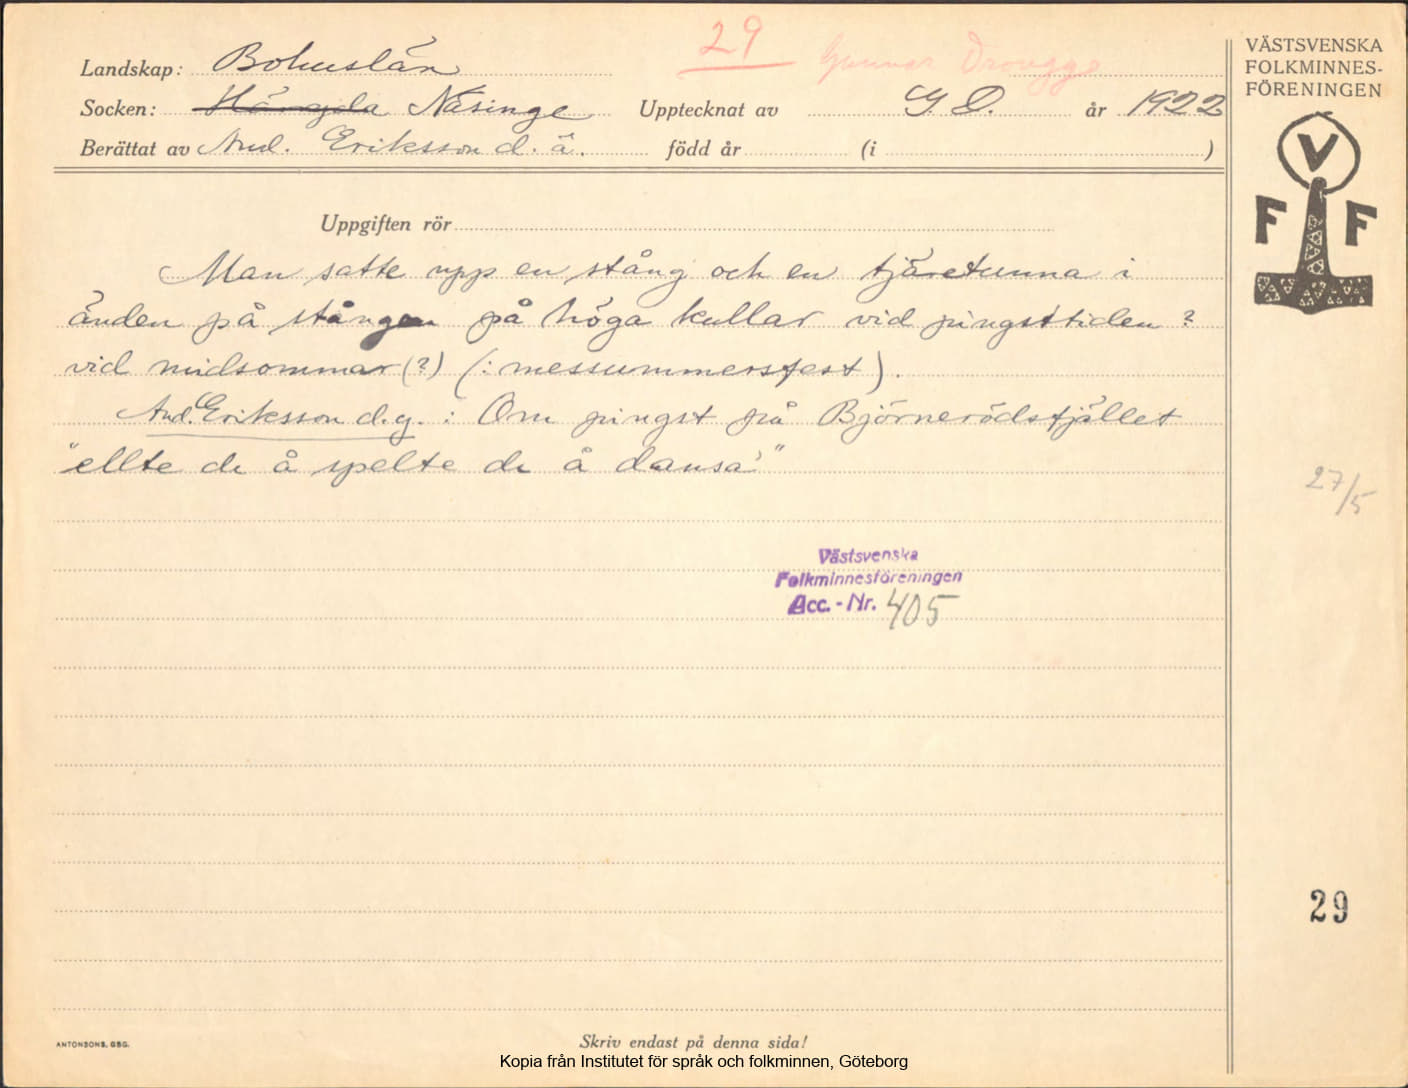 29 Gunnar Drougge
Landskap: Bohuslän
Socken: Näsinge Upptecknat av G. D. år 1922
Berättat av And. Eriksson d. ä. född år (i )
VÄSTSVENSKA
FOLKMINNES-
FÖRENINGEN
V
F F
Uppgiften rör
Man satte upp en stång och en tjäretunna i
änden på stången på höga kullar vid pingsttiden ?
vid midsommar (?) (: messummersfest).
And. Eriksson d.y. : Om pingst på Björnerödsfjället
"ellte di å spelte di å dansa'"
27/5
Västsvenska
Folkminnesföreningen
Acc. - Nr. 405
29
ANTONSONS, GBG.
Skriv endast på denna sida!
Kopia från Institutet för språk och folkminnen, Göteborg